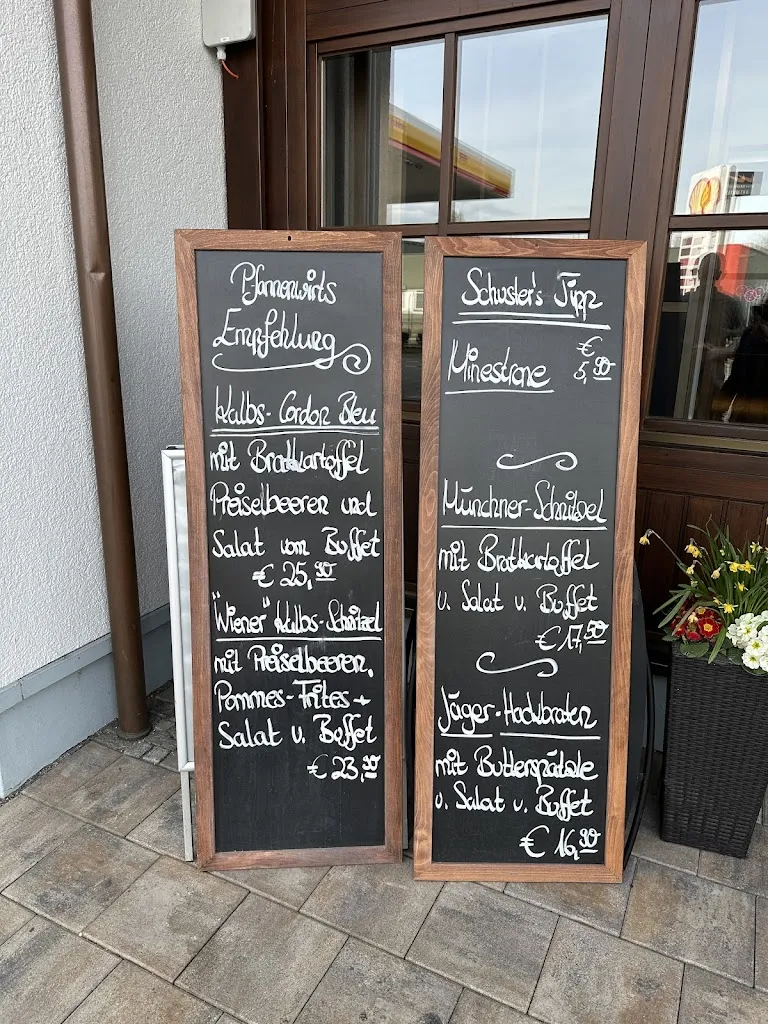 Pfannenwirts
Empfehlung
Kalbs-Cordon Bleu
mit Bratkartoffel
Preiselbeeren und
Salat vom Buffet
€ 25,90
"Wiener" Kalbs-Schnitzel
mit Preiselbeeren,
Pommes-Frites +
Salat v. Buffet
€ 23,90
Schuster's Tipp
Minestrone € 5,90
Münchner-Schnitzel
mit Bratkartoffel
u. Salat v. Buffet
€ 17,50
Jäger-Hackbraten
mit Butterspätzle
u. Salat v. Buffet
€ 16,90